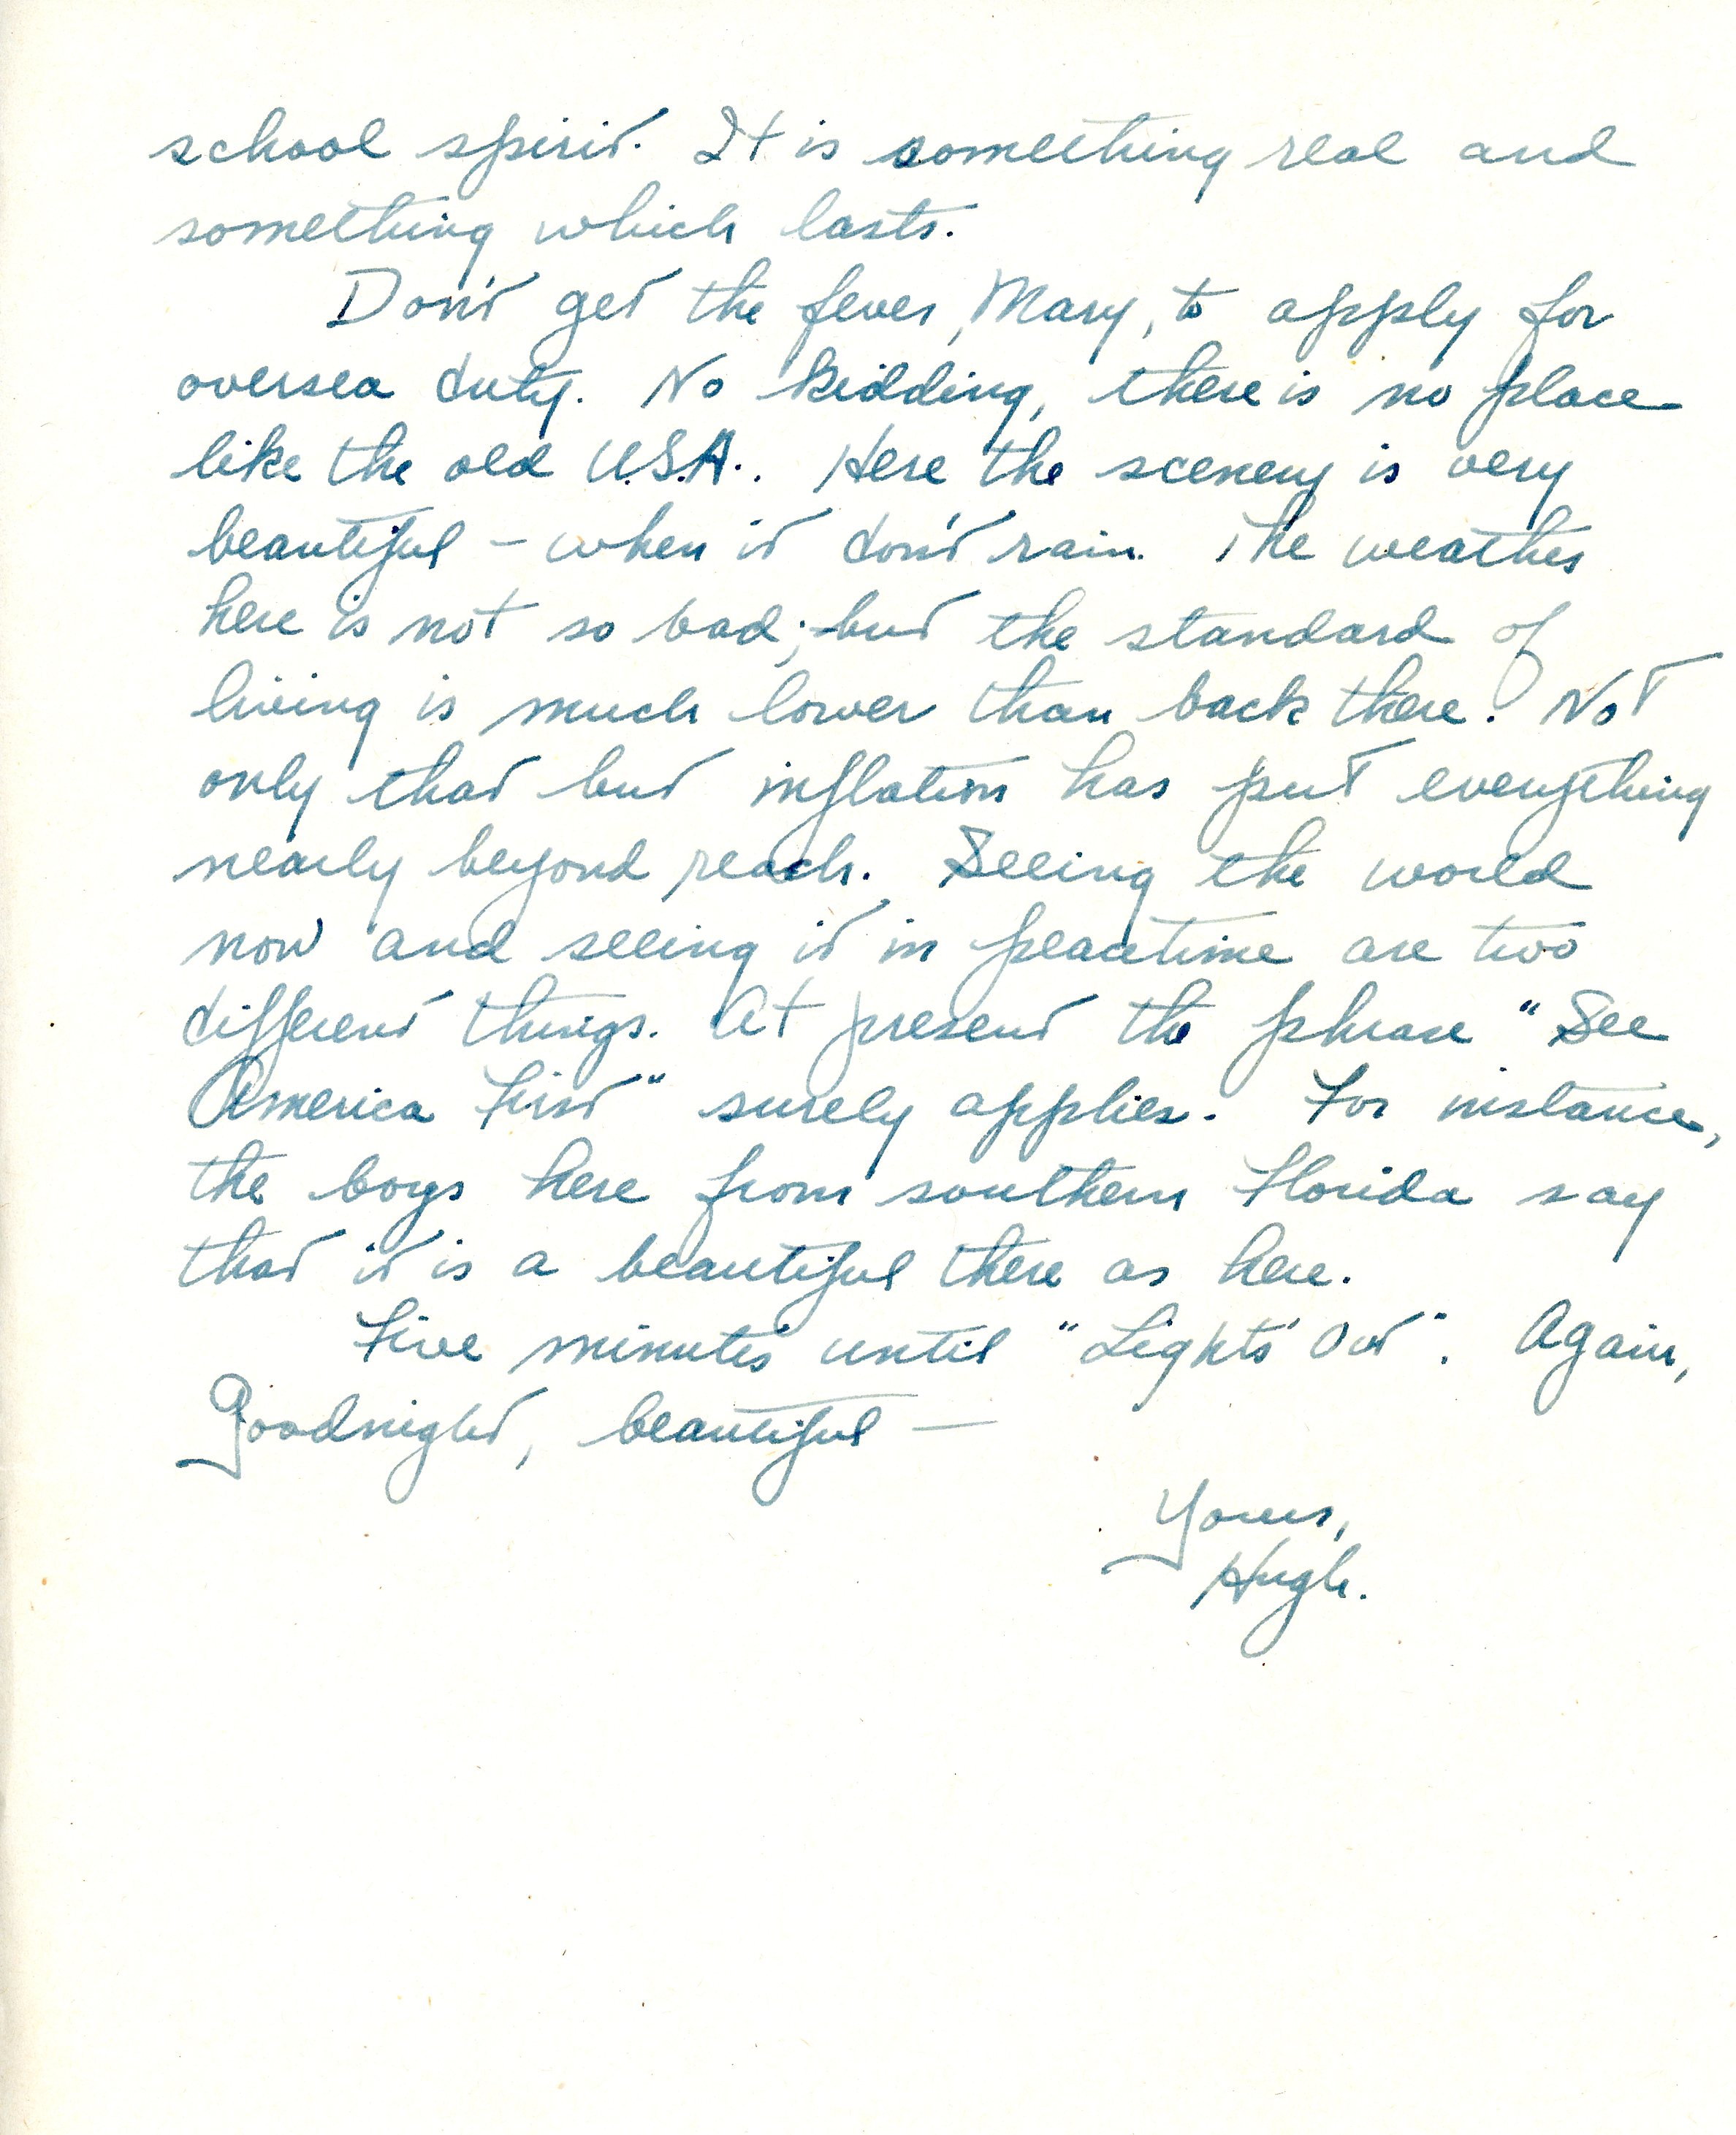 school spirit. It is something real and
something which lasts.
Don't get the fever, Mary, to apply for
oversea duty. No kidding, there is no place
like the old U.S.A.. Here the scenery is very
beautiful – when it don't rain. The weather
here is not so bad; but the standard of
living is much lower than back there. Not
only that but inflation has put everything
nearly beyond reach. Seeing the world
now and seeing it in peacetime are two
different things. At present the phrase "See
America First" surely applies. For instance,
the boys here from southern Florida say
that it is a beautiful there as here.
Five minutes until "Lights Out". Again,
Goodnight, beautiful —
Yours,
Hugh.